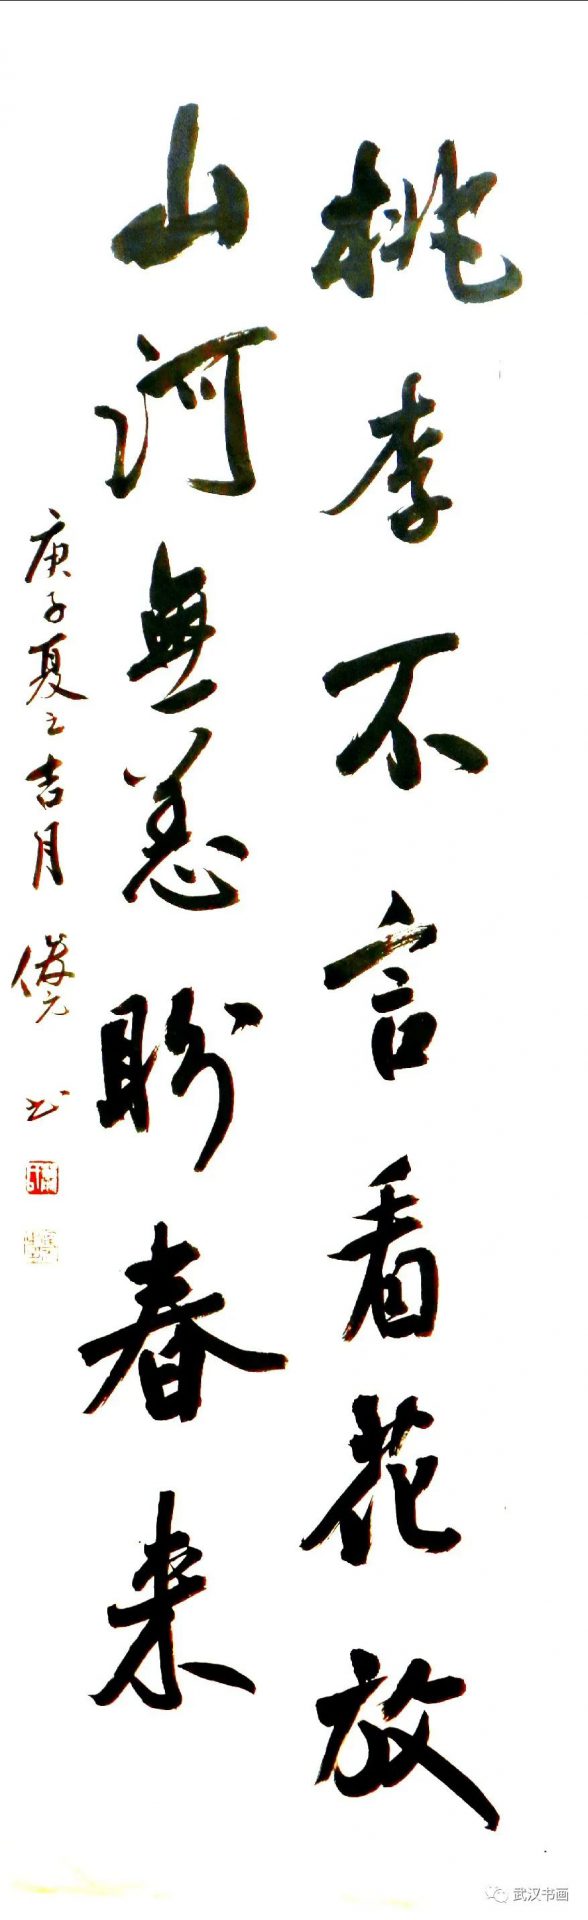 桃李不言看花放
山河無恙盼春来
庚子夏之吉月 俊元 书
武汉书画